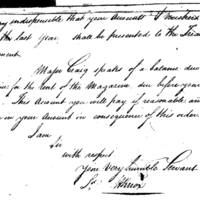 indispensible that your Accounts
the last year shall be presented to the Trea
ment.
Major Craig speaks of a balance due
for the rent of the Magazine due before year
This Amount you will pay if reasonable an
in your Amount in consequence of this order
I am
Sir
with respect
Your Very humble Servant
HKnox